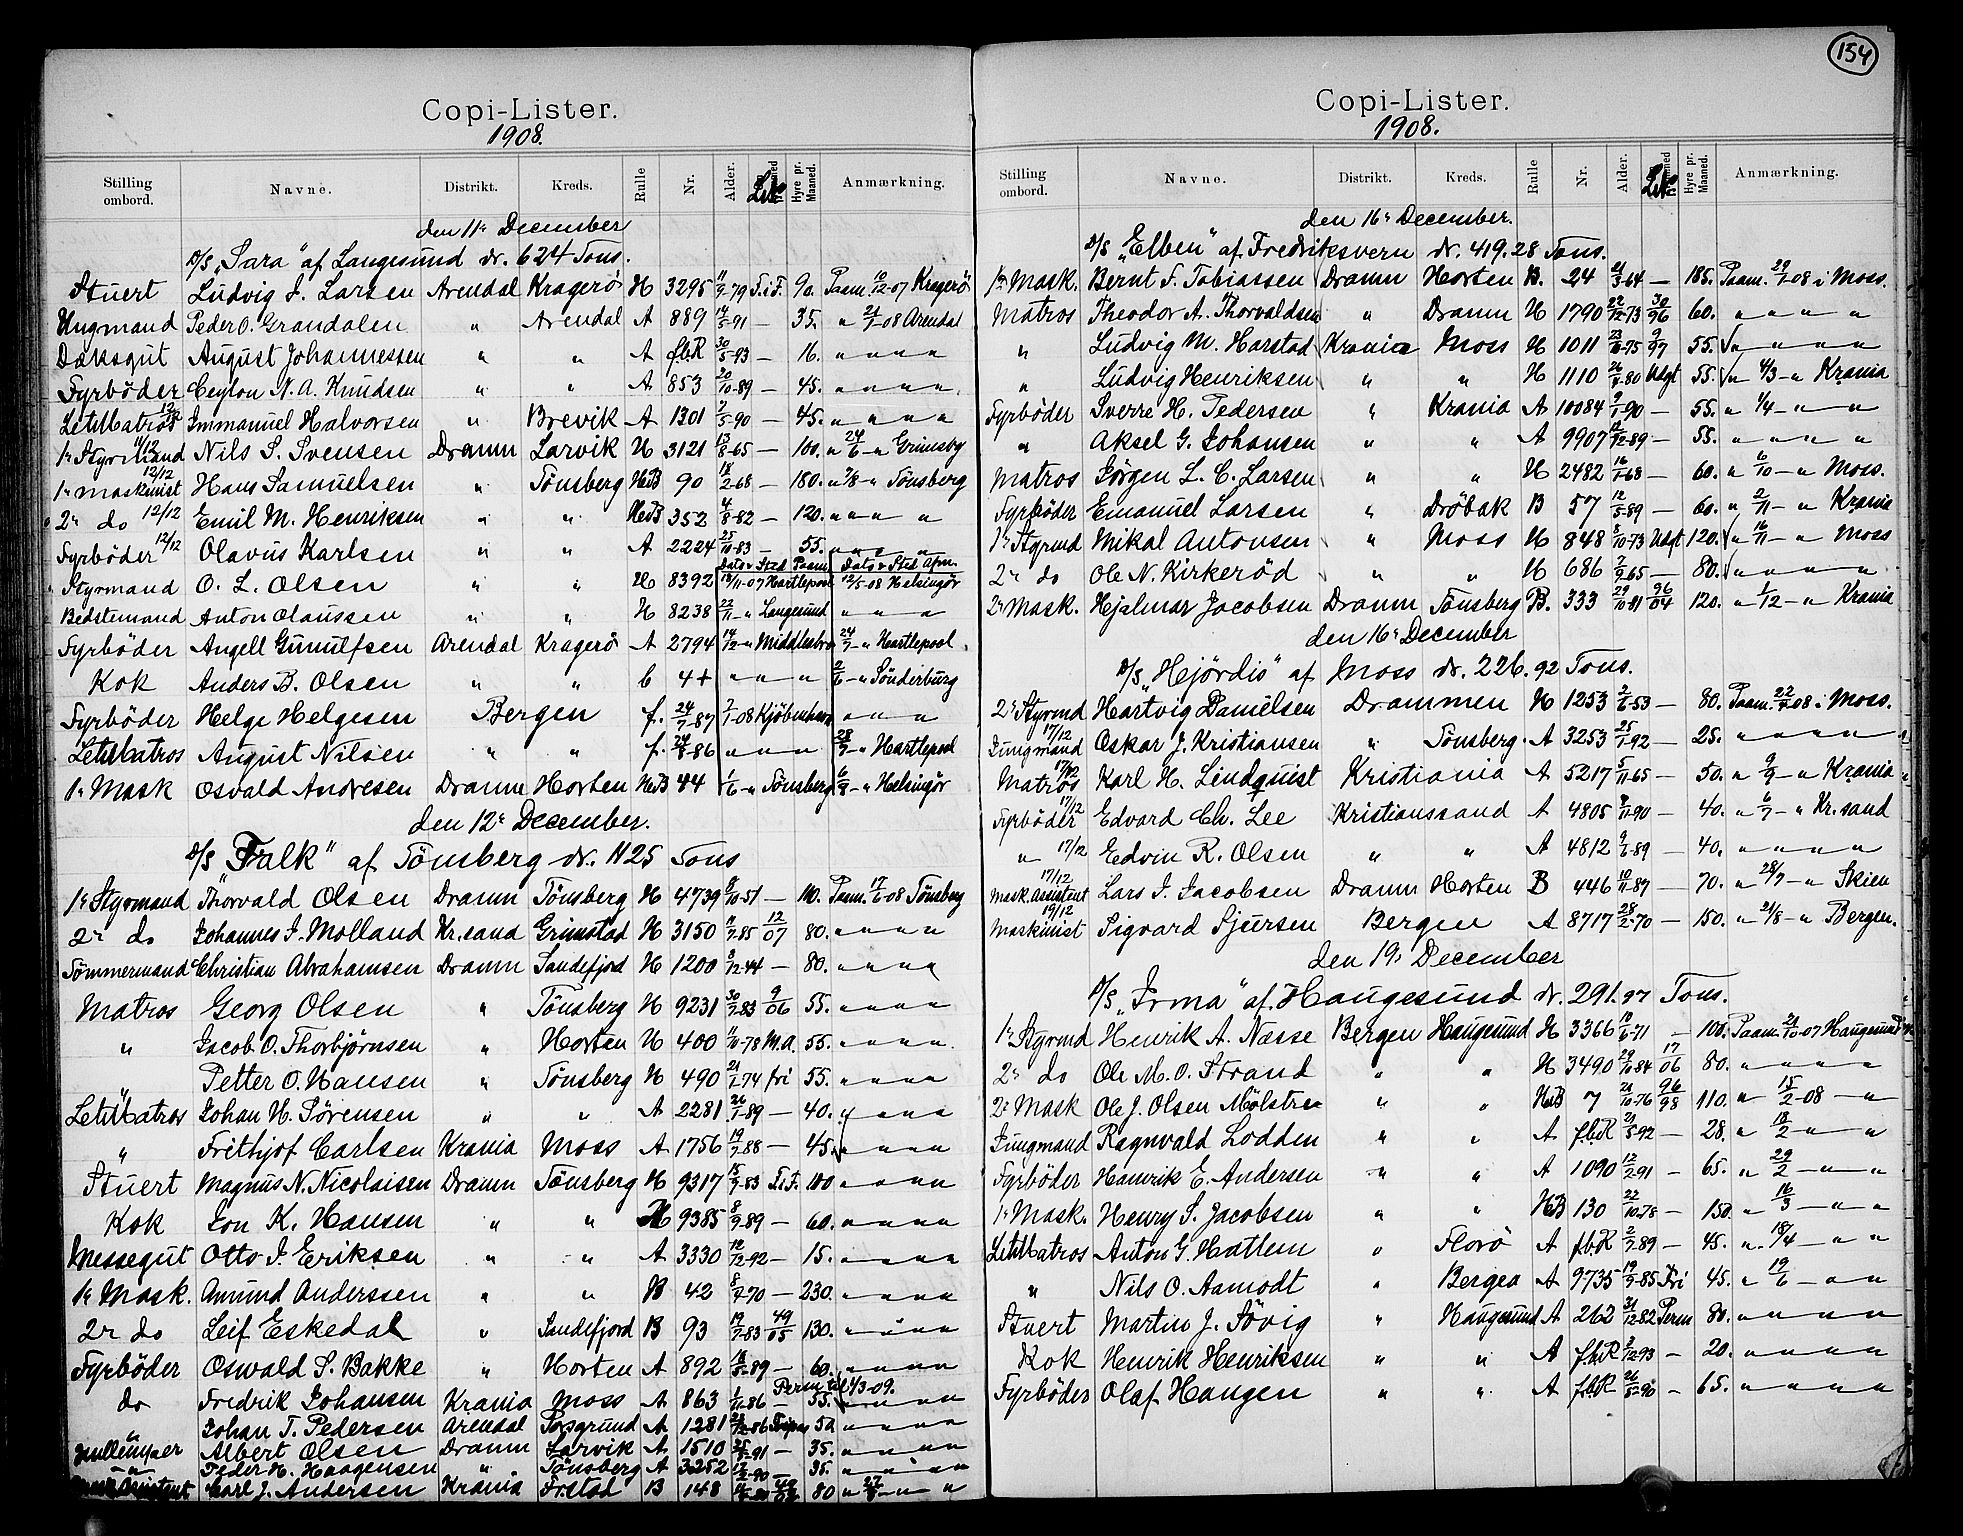 154
Copi-Lister.
1908.
Stilling ombord. Navne. Distrikt. Kreds. Rulle Nr. Alder. Hyre pr. Maaned. Anmærkning.
den 11' December
D/S „Sara" af Langesund dr. 624 Tons.
Stuert Ludvig J. Larsen Arendal Kragerö H 3295 11/9-79 F.i.F. 90. Paam. 10/12-07 Kragerö
Ungmand Peder O. Grandalen " Arendal A 889 14/5-91 — 35. " 21/7-08 Arendal
Dæksgut August Johannessen " " A fbR 30/5-93 — 16. " " " "
Fyrböder Ceylon N. A. Knudsen " " A 853 20/10-89 — 45. " " " "
LetMatros Immanuel Halvorsen " Brevik A 1301 7/5-90 — 45. " " " "
1' Styrmand 11/12 Nils S. Svensen Dramn Larvik H 3121 13/8-65 — 100. " 24/6 - " Grimsby
1' maskinist 12/12 Hans Samuelsen " Tönsberg HB 90 18/2-68 — 180. " 7/8 - " Tönsberg
2' do 12/12 Emil M. Henriksen " " HB 352 4/8-82 — 120. " " " "
Fyrböder 12/12 Olavus Karlsen " " A 2224 25/10-83 — 55. " " " "
Dato & Sted Paam. Dato & Sted Afm.
Styrmand O. L. Olsen " " H 8392 13/11-07 Hartlepool 12/5-08 Helsingör
Bedstemand Anton Olaussen " " H 8238 22/11 - " Langesund " " "
Fyrböder Angell Gunulfsen Arendal Kragerö A 2794 14/12 - " Middlesbro 24/7 - " Hartlepool
Kok Anders B. Olsen " " C 4+ " " " 2/6 - " Sönderburg
Fyrböder Helge Helgesen Bergen f. 24/7-87 2/1-08 Kjöbenhavn " " "
LetMatros August Nilsen " " f. 24/8-86 " " " 28/7 - " Hartlepool
1' Mask Osvald Andresen Dramn Horten HB 44 1/6 - " Tönsberg 6/9 - " Helsingör
den 12' December.
D/S „Falk" af Tönsberg dr. 1125 Tons
1' Styrmand Thorvald Olsen Dramn Tönsberg H 4739 8/10-51 — 110. Paam. 17/6-08 Tönsberg
2' do Johannes J. Molland Kr.sand Grimstad H 3150 11/7-85 12/07 80. " " " "
Tömmermand Christian Abrahamsen Dramn Sandefjord H 1200 6/12-44 — 80. " " " "
Matros Georg Olsen " Tönsberg H 9231 30/7-83 9/06 55. " " " "
" Jacob O. Thorbjörnsen " Horten H 400 11/10-78 M.A. 55. " " " "
" Petter O. Hansen " Tönsberg H 490 21/2-74 fri 55. " " " "
LetMatros Johan H. Sörensen " " A 2281 26/1-89 — 40. " " " "
" Frithjof Carlsen Krania Moss A 1756 19/7-88 — 45. " " " "
Stuert Magnus N. Nicolaisen Dramn Tönsberg H 9317 15/9-83 F.i.F. 100 " " " "
Kok Jon K. Hansen " " H 9385 8/9-89 — 60. " " " "
Messegut Otto J. Eriksen " " A 3330 12/12-92 — 15. " " " "
1' Mask. Amund Anderssen " " B 42 8/7-70 — 230. " " " "
2' do Leif Eskedal " Sandefjord B 93 19/7-83 49/05 130. " " " "
Fyrböder Oswald S. Bakke " Horten A 892 18/5-89 — 60. " " " "
Perm. til 1/3-09.
do Fredrik Johansen Krania Moss A 863 1/11-86 — 55. " " " "
" Johan T. Pedersen Arendal Porsgrund A 1281 50 " " " "
Kullemper Albert Olsen Dramn Larvik A 1510 — 35. " " " "
" Peder H. Haagensen " Tönsberg A 3252 — 35. " " " "
Mask. Assistent Carl J. Andersen Krania Fr.stad B 148 80 " 27/8 - " "
Copi-Lister.
1908.
Stilling ombord. Navne. Distrikt. Kreds. Rulle Nr. Alder. Hyre pr. Maaned. Anmærkning.
den 16' December.
D/S „Elben" af Fredriksvern dr. 419.28 Tons.
1' Mask. Bernt F. Tobiassen Dramn Horten B. 24 21/3-64 — 185. Paam. 29/1-08 i Moss.
Matros Theodor A. Thorvaldsen " Dramn H 1790 22/12-73 30/96 60. " " " "
" Ludvig M. Harstad Krania Moss H 1011 23/10-75 9/97 55. " " " "
" Ludvig Henriksen " " H 1110 26/8-80 Udgt 55. " 4/3 - " Krania
Fyrböder Sverre H. Pedersen " Krania A 10084 9/1-90 — 55. " 1/4 - " "
" Aksel G. Johansen " " A 9907 12/12-89 — 55. " " " "
Matros Jörgen L. C. Larsen " " H 2482 16/1-68 — 60. " 6/10 - " Moss.
Fyrböder Emanuel Larsen " Dröbak B 57 12/5-89 — 60. " 2/11 - " Krania
1' Styrmd Mikal Antonsen " Moss H 848 8/10-73 Udgt 120. " 16/11 - " Moss
2' do Ole N. Kirkeröd " " H 686 7/9-65 — 80. " " " "
2' Mask. Hjalmar Jacobsen Dramn Tönsberg B. 333 29/10-81 96/04 120. " 1/12 - " Krania
den 16' December
D/S „Hejördis" af Moss dr. 226.92 Tons.
2' Styrmd Hartvig Danielsen Drammen H 1253 2/6-53 — 80. Paam. 22/7-08 i Moss.
Jungmand 17/12 Oskar J. Kristiansen " Tönsberg. A 3253 25/1-92 — 25. " " " "
Matros 17/12 Karl H. Lindquist Kristiania A 5217 5/11-65 — 50. " 9/9 - " Krania
Fyrböder 17/12 Edvard Ch. Lee Kristianssand A 4805 8/11-90 — 40. " 6/7 - " Kr.sand
" 17/12 Edvin R. Olsen " " A 4812 9/6-89 — 40. " " " "
Mask. Assistent 17/12 Lars J. Jacobsen Dramn Horten B 446 10/11-87 — 70. " 28/7 - " Skien
Maskinist 19/12 Sigvard Sjursen Bergen A 8717 28/2-70 — 150. " 21/8 - " Bergen.
den 19' December
D/S „Irma" af Haugesund dr. 291.97 Tons.
1' Styrmd Henrik A. Næsse Bergen Haugesund H 3366 10/6-71 — 100. Paam. 21/10-07 Haugesund
2' do Ole M. O. Strand " " H 3490 29/10-84 17/06 80. " " " "
2' Mask Ole J. Olsen Mölstre " " HB 7 21/10-76 96/98 110. " 15/2-08 - "
Jungmand Ragnvald Lodden " " A fbR 21/5-92 — 28. " 18/2 - " "
Fyrböder Henrik E. Andersen " " A 1090 12/2-91 — 65. " 29/2 - " "
1' Mask. Henry S. Jacobsen " " HB 130 22/10-78 — 150. " 16/3 - " "
LetMatros Anton G. Hatlem " Florö A fbR 2/7-89 — 45. " 18/4 - " "
" Nils O. Aamodt " Bergen A 9735 19/9-85 Fri 45. " 19/6 - " "
Stuert Martin J. Sövig " Haugesund A 262 31/12-82 Perm 80. " " " "
Kok Henrik Henriksen " " A fbR 2/12-93 — 20. " " " "
Fyrböder Olaf Haugen " " A fbR 26/8-90 — 65. " " " "